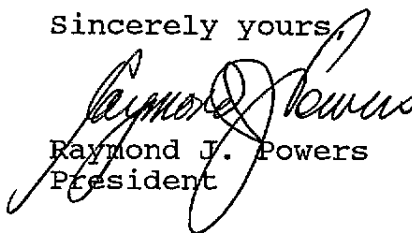 Sincerely yours,
Raymond J. Powers
Raymond J. Powers
President